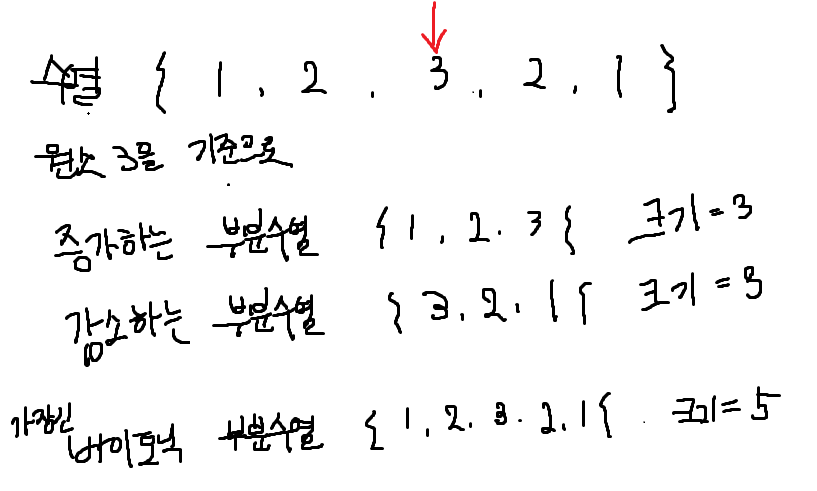 수열 { 1, 2, 3, 2, 1 }
원소 3을 기준으로
증가하는 부분수열 { 1, 2. 3 { 크기 = 3
감소하는 부분수열 { 3, 2, 1 { 크기 = 3
가장긴 바이토닉 부분수열 { 1, 2. 3. 2, 1 { 크기 = 5